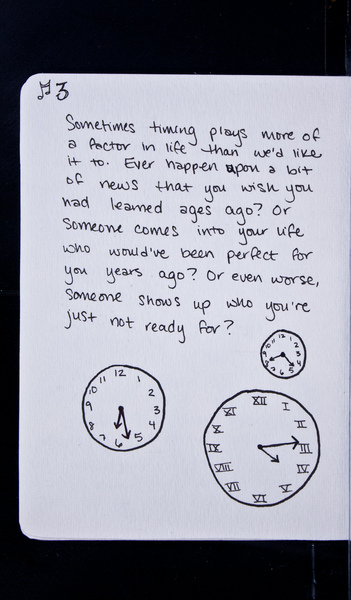 ♫3
Sometimes timing plays more of
a factor in life than we'd like
it to. Ever happen upon a bit
of news that you wish you
had learned ages ago? Or
Someone comes into your life
who would've been perfect for
you years ago? Or even worse,
Someone shows up who you're
just not ready for?
12 1 2 3 4 5 6 7 8 9 10 11
12 1 2 3 4 5 6 7 8 9 10 11
XII I II III IV V VI VII VIII IX X XI